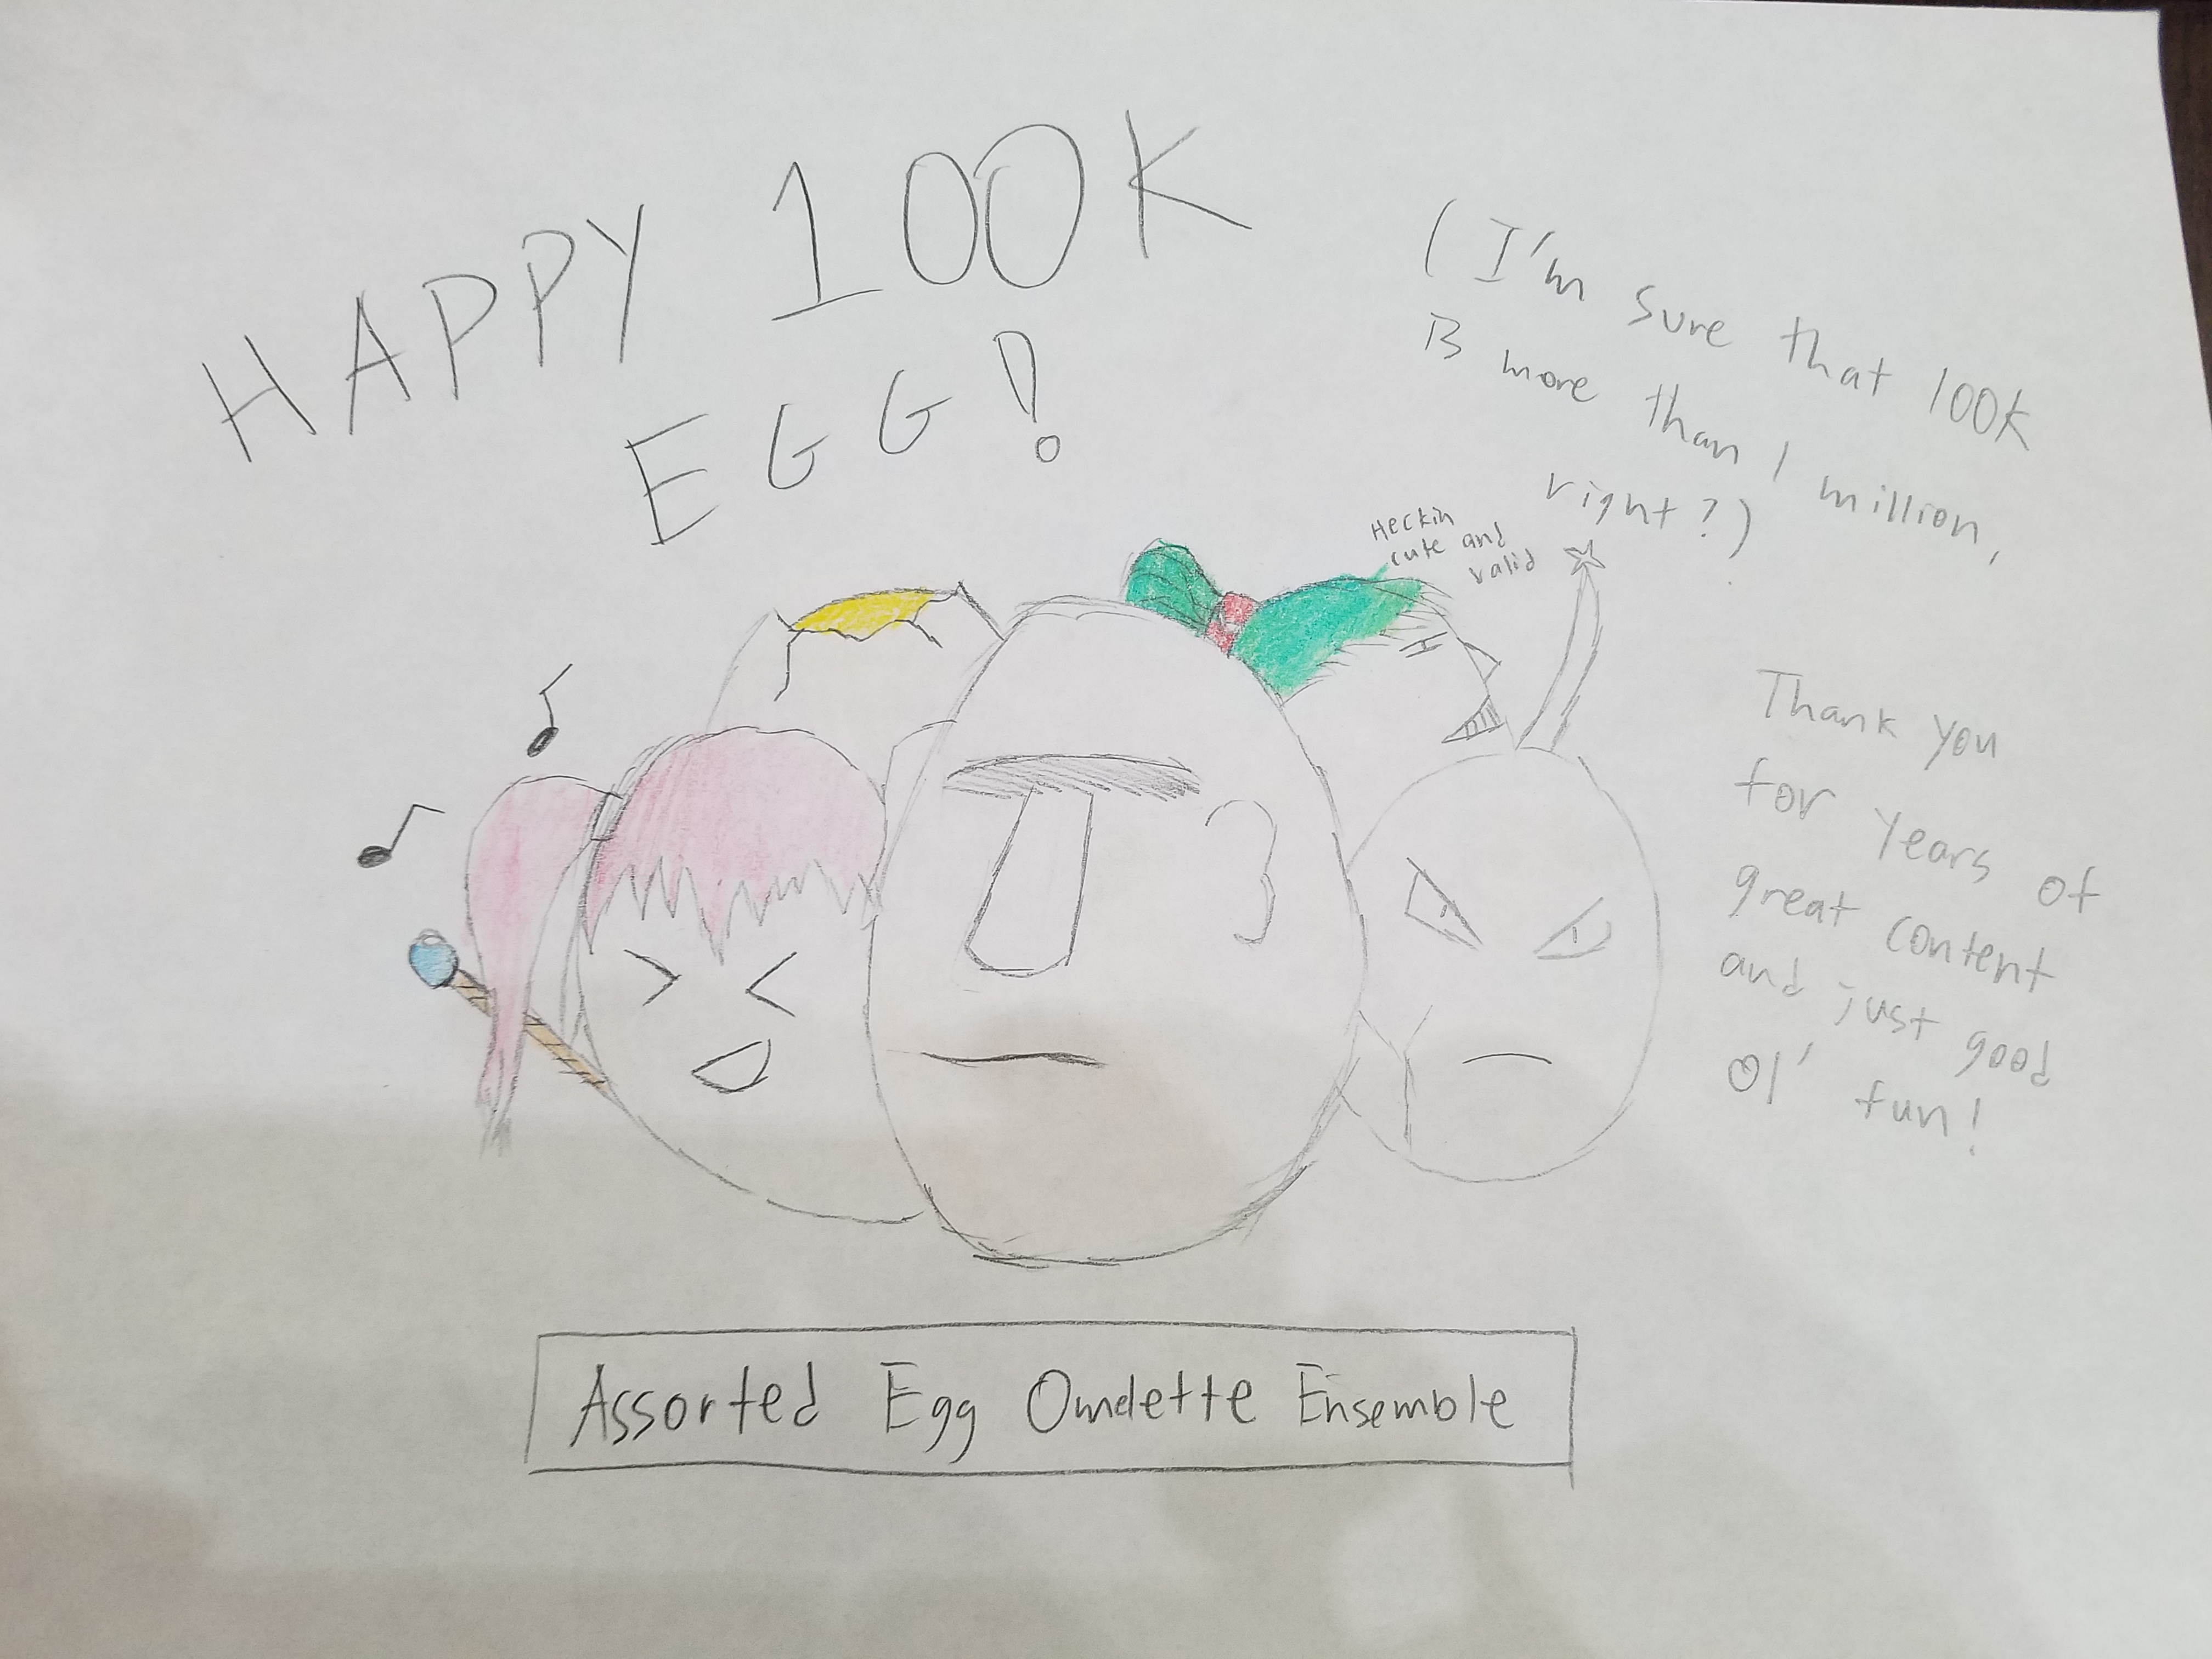 HAPPY 100K
EGG!
(I'm sure that 100K
is more than 1 million,
right?)
Heckin
cute and
valid
Thank you
for years of
great content
and just good
ol' fun!
Assorted Egg Omelette Ensemble